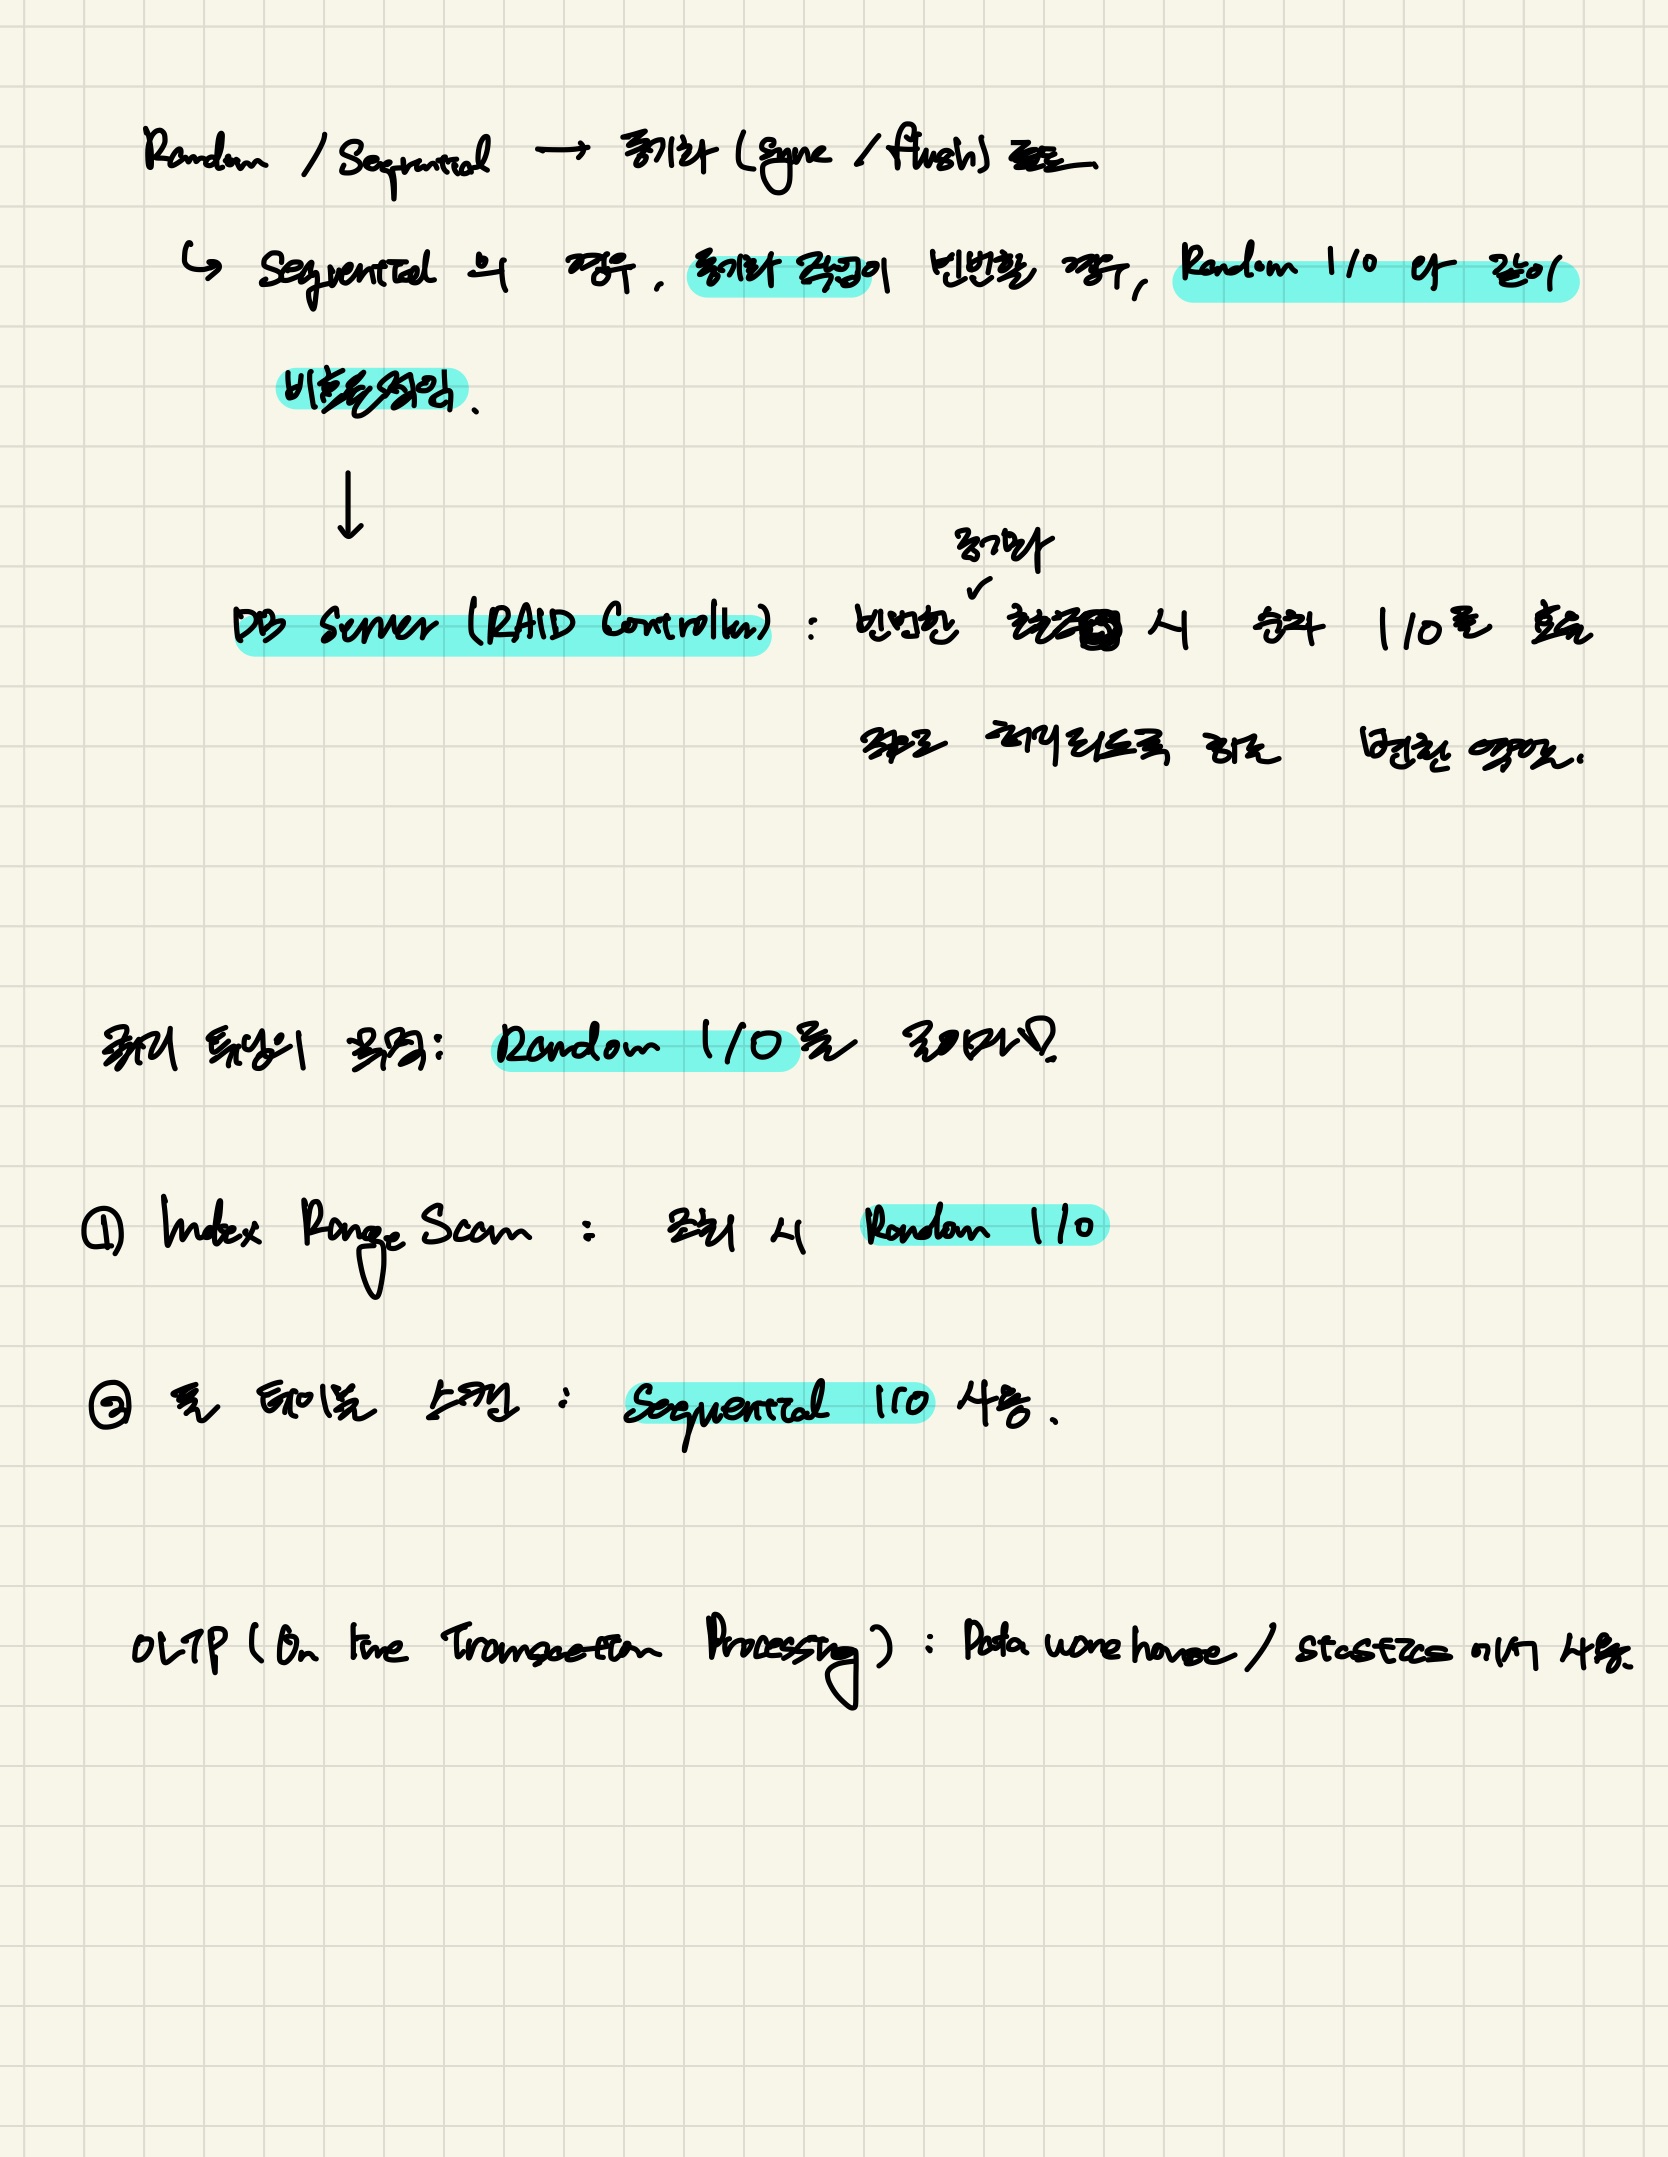 Random / Sequential → 동기화 (sync / flush) 필요
↳ Sequential 의 경우, 동기화 작업이 빈번할 경우, Random I/O 와 같이
비효율적임.
↓
동기화
DB Server (RAID Controller) : 빈번한 ✓ 시 순차 I/O를 효율
적으로 처리되도록 하는 변환 역할.
쿼리 튜닝의 목적: Random I/O를 줄이마♡.
① Index Range Scan : 조회 시 Random I/O
② 풀 테이블 스캔 : Sequential I/O 사용.
OLTP (On line Transaction Processing) : Data warehouse / stastics 에서 사용.